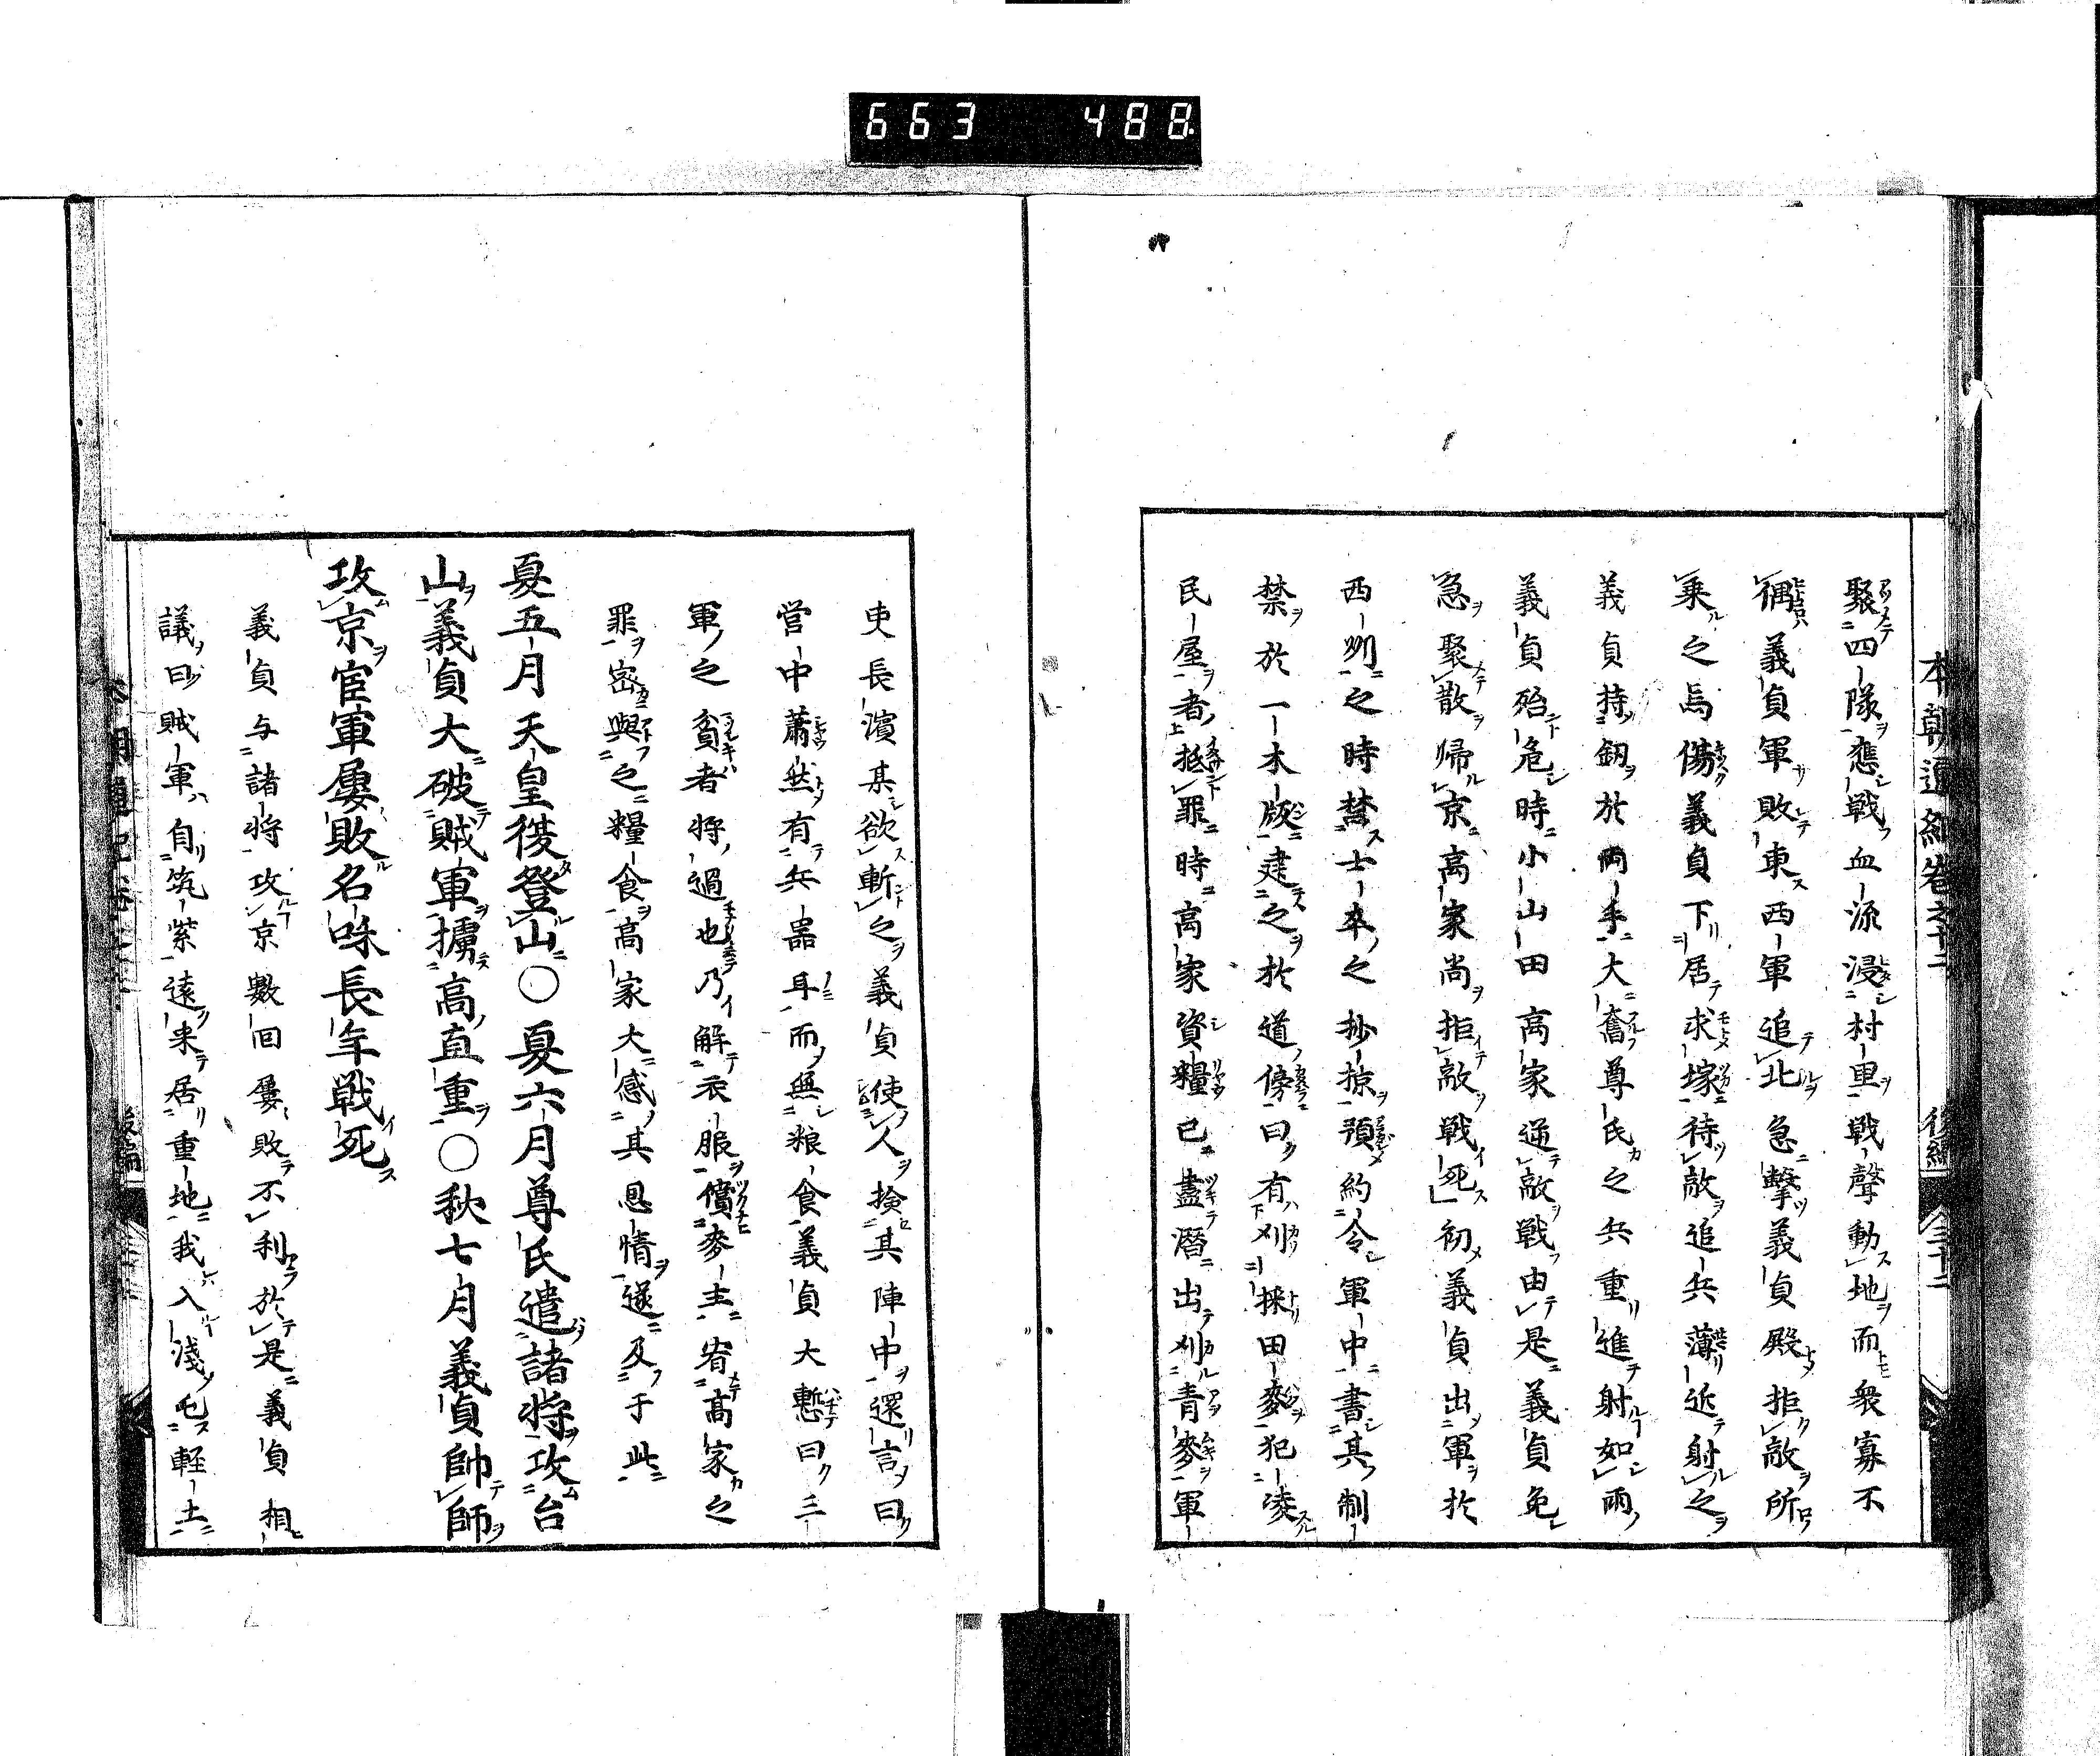 663 488
聚四隊應戦血流浸村里戦聲動地而衆寡不
偶義貞軍敗東西軍追北急撃義貞殿拒敵所
乗之馬傷義貞下居求塚待敵追兵薄近射之
義貞持釼於両手大奮尊氏之兵重進射如雨
義貞殆危時小山田高家遮敵戦由是義貞免
急聚散帰京高家尚拒敵戦死初義貞出軍於
西州之時禁士卒之抄掠預約令軍中書其制
禁於一木版建之於道傍曰有刈採田麥犯凌
民屋者抵罪時高家資糧已盡潜出刈青麥軍
吏長濱某欲斬之義貞使人撿其陣中還言曰
営中蕭然有兵器耳而無粮食義貞大慙曰三
軍之貧者将過也乃解衣服償麥主宥高家之
罪密與之糧食高家大感其恩情遂及于此
夏五月天皇復登山〇夏六月尊氏遣諸将攻台
山義貞大破賊軍擄高直重〇秋七月義貞帥師
攻京官軍屢敗名味長年戦死
義貞与諸将攻京數回屢敗不利於是義貞相
議曰賊軍自筑紫遠来居重地我入淺屯軽土